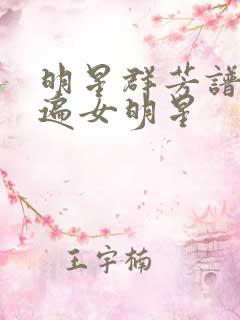 明星群芳譜
遍女明星
王宇楠